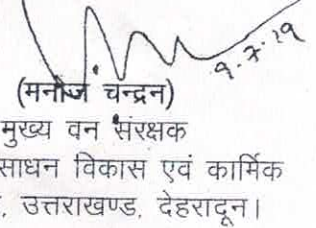 9.7.19
(मनोज चन्द्रन)
मुख्य वन संरक्षक
साधन विकास एवं कार्मिक
, उत्तराखण्ड, देहरादून।